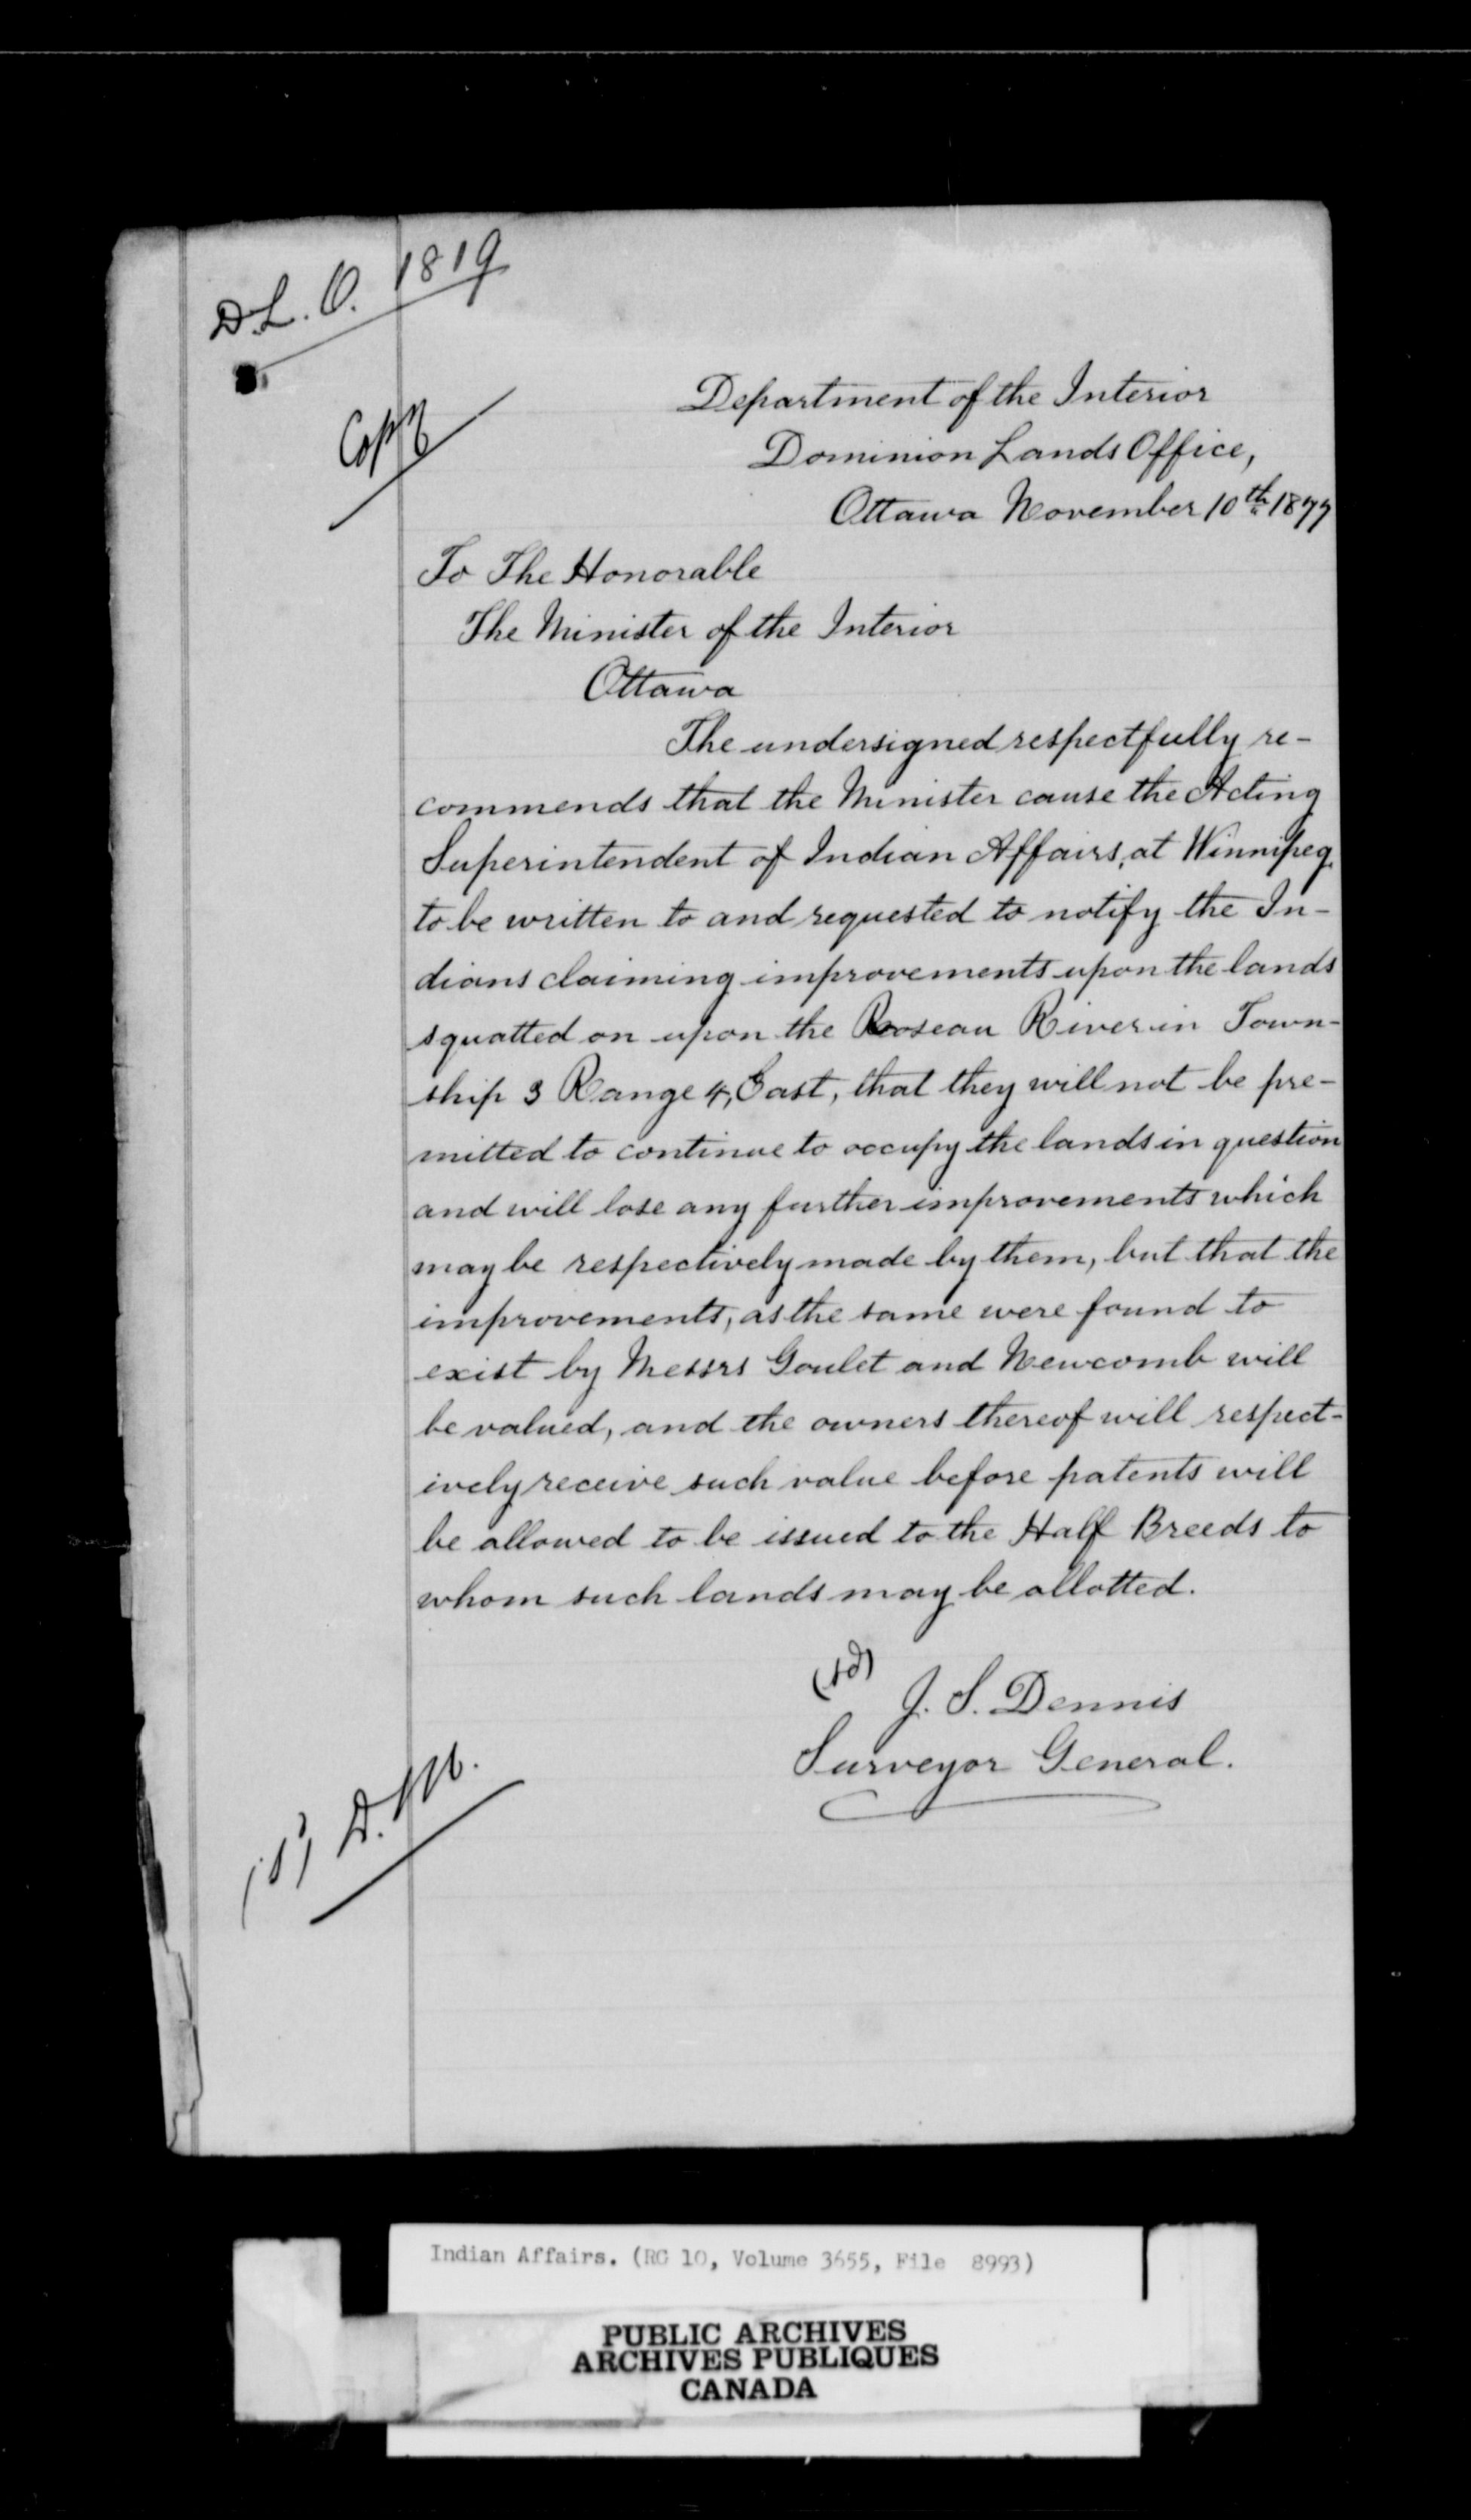 D.L.O. 1819
Copy
Department of the Interior
Dominion Lands Office,
Ottawa November 10th 1877
To The Honorable
The Minister of the Interior
Ottawa
The undersigned respectfully re-
commends that the Minister cause the Acting
Superintendent of Indian Affairs, at Winnipeg
to be written to and requested to notify the In-
dians claiming improvements upon the lands
squatted on upon the Roseau River in Town-
ship 3 Range 4, East, that they will not be pre-
mitted to continue to occupy the lands in question
and will lose any further improvements which
may be respectively made by them, but that the
improvements, as the same were found to
exist by Messrs Goulet and Newcomb will
be valued, and the owners thereof will respect-
ively receive such value before patents will
be allowed to be issued to the Half Breeds to
whom such lands may be allotted.
(sd) J. S. Dennis
Surveyor General.
Indian Affairs. (RG 10, Volume 3655, File 8993)
PUBLIC ARCHIVES
ARCHIVES PUBLIQUES
CANADA